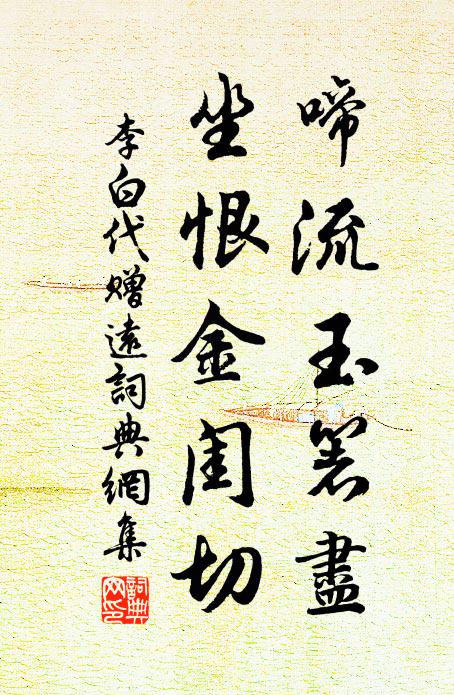 啼流玉箸盡
坐恨金閨切
李白代贈遠詞典網集
詞典网印